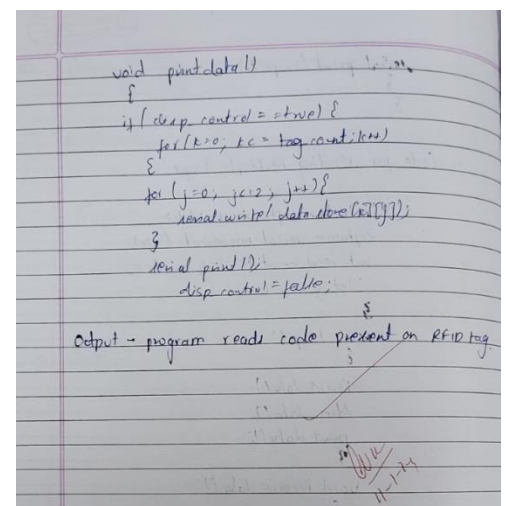 void printdata()
{
if (disp_control = =true) {
for(k=0; k<= tag count; k++)
{
for (j=0; j<12; j++){
serial.write( data store [k][j]);
}
serial print();
disp control = false;
}
Output - program reads code present on RFID tag.
}